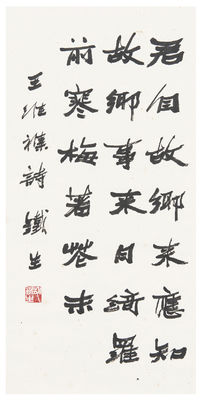 君自故鄉來應知
故鄉事來日綺
前寒梅著花未
王維襍詩 鐵生